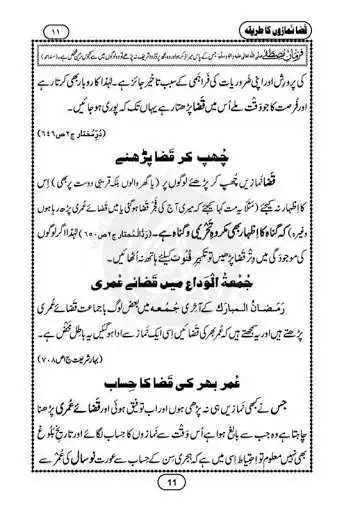 قضا نمازوں کا طریقہ
۱۱
کی پرورش اور اپنی ضروریات کی فراہمی کے سبب تاخیر جائز ہے۔ لہٰذا کاروبار بھی کرتا رہے
اور فُرصت کا جو وَقْت ملے اُس میں قَضا پڑھتا رہے یہاں تک کہ پوری ہو جائیں۔
(دُرِّمُختار ج۲ص۶۴۶)
چُھپ کر قَضا پڑھئے
قَضا نمازیں چُھپ کر پڑھئے لوگوں پر (یا گھر والوں بلکہ قریبی دوست پر بھی) اِس
کا اِظہار نہ کیجئے (مَثَلاً یہ مت کہا کیجئے کہ میری آج کی فَجْر قَضا ہو گئی یا میں قضائے عُمری پڑھ رہا ہوں
وغیرہ) کہ گناہ کا اِظہار بھی مکروہِ تَحریمی و گناہ ہے۔ (رَدُّالْمُحتار ج۲ص۶۵۰) لہٰذا اگر لوگوں
کی موجودگی میں وِتْر قَضا پڑھیں تو تکبیرِ قُنوت کیلئے ہاتھ نہ اُٹھائیں۔
جُمعۃُ الْوَداع میں قضائے عُمری
رَمَضانُ المبارَک کے آخِری جُمعہ میں بعض لوگ با جماعت قضائے عُمری
پڑھتے ہیں اور یہ سمجھتے ہیں کہ عُمر بھر کی قضائیں اِسی ایک نَماز سے ادا ہو گئیں یہ باطِل مَحْض ہے۔
(بہارِشریعت ج۱ص۷۰۸)
عُمر بھر کی قضا کا حِساب
جس نے کبھی نَمازیں ہی نہ پڑھی ہوں اور اب توفیق ہوئی اور قضائے عُمری پڑھنا
چاہتا ہے وہ جب سے بالِغ ہوا ہے اُس وَقْت سے نَمازوں کا حساب لگائے اور تاریخِ بُلوغ
بھی نہیں معلوم تو اِحتیاط اِسی میں ہے کہ ہجری سِن کے حساب سے عورت نو سال کی عُمْر سے
11